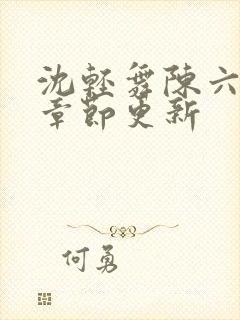 沈轻舞陈六
章节更新
何勇